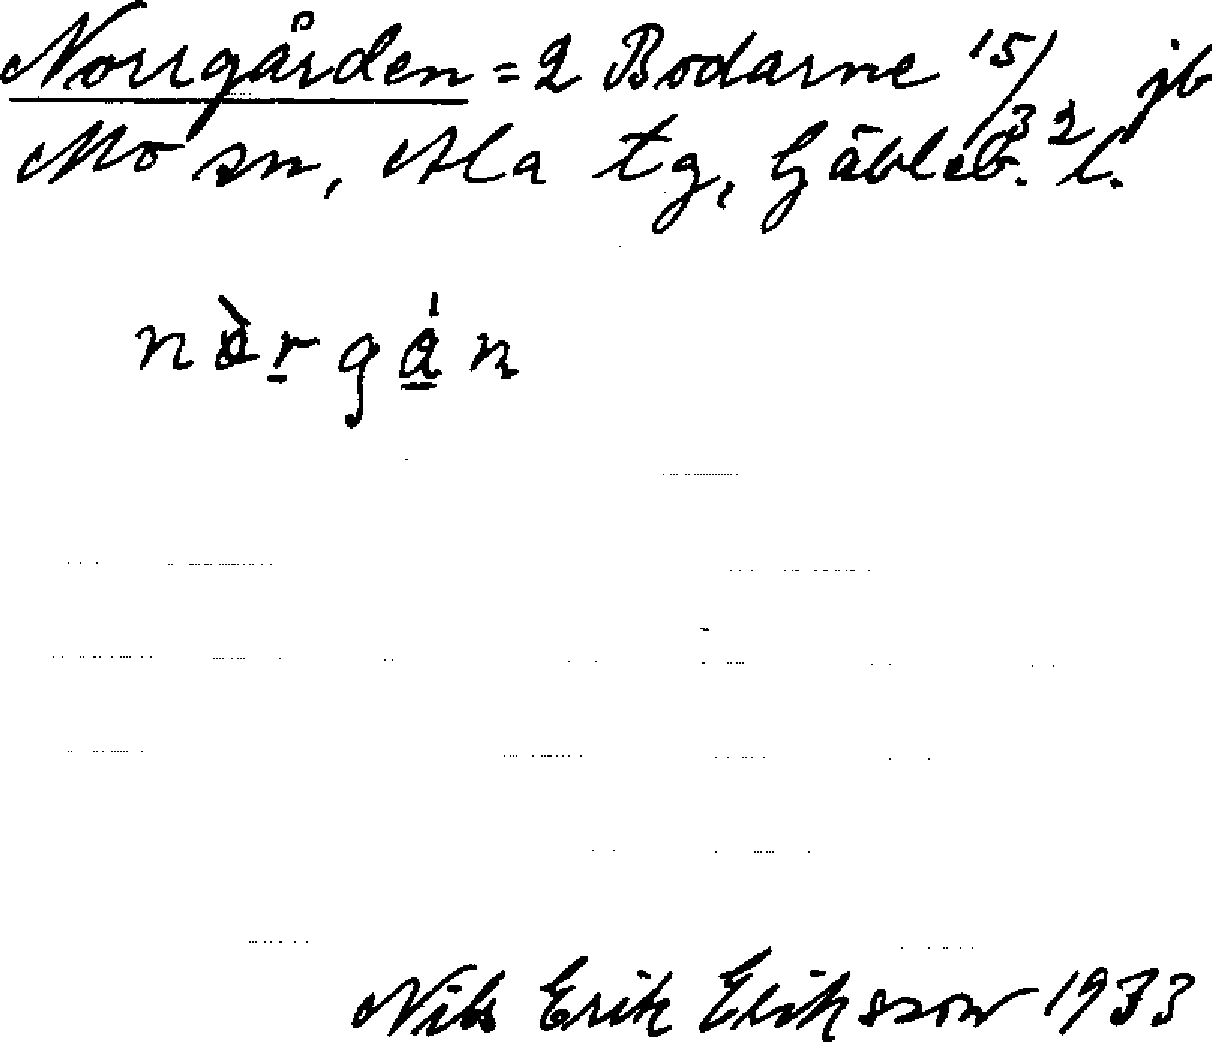 Norrgården = 2 Bodarne 15/32 jb
Mo sn, Ala tg, Gävleb. l.
nòrgán
Nils Erik Eriksson 1933